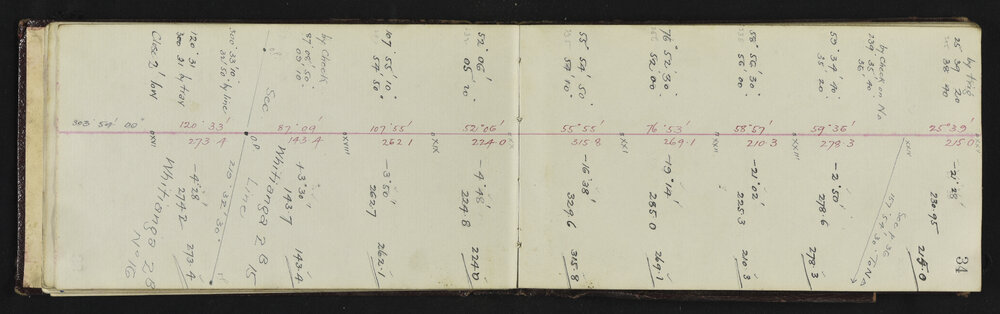 34
by trig
25° 39' 20
38 40
25° 39'
215.0
-21° 28'
230.95
215.0
XXIV
by check on No
239° 35' 40"
36'
Sec A 36
157° 54' 30" To No
59° 34' 40"
35' 20
59° 36'
278.3
-2° 50'
278.6
278.3
XXIII
58° 56' 30"
56' 00"
58° 57'
210.3
-21° 02'
225.3
210.3
XXII
76° 52' 30"
52' 00"
76° 53'
269.1
-19° 14'
285.0
269.1
XXI
55° 54' 50"
54' 10"
55° 55'
315.8
-16° 38'
329.6
315.8
XX
52° 06'
05' 20"
52° 06'
224.0
-4° 48'
224.8
224.0
XIX
107° 55' 10"
54' 50"
107° 55'
262.1
-3° 50'
262.7
262.1
XVIII
by check
87° 08' 50"
09' 10"
87° 09'
143.4
+3° 30'
143.7
143.4
Whitianga 2 B 15
Sec. Line
210° 32' 30"
300° 33' 10"
32' 50" by line
120° 31' by trav
300 31
120° 33'
273.4
-4° 28'
274.2
273.4
XVI
303° 54' 00"
Whitianga 2 B
No 6